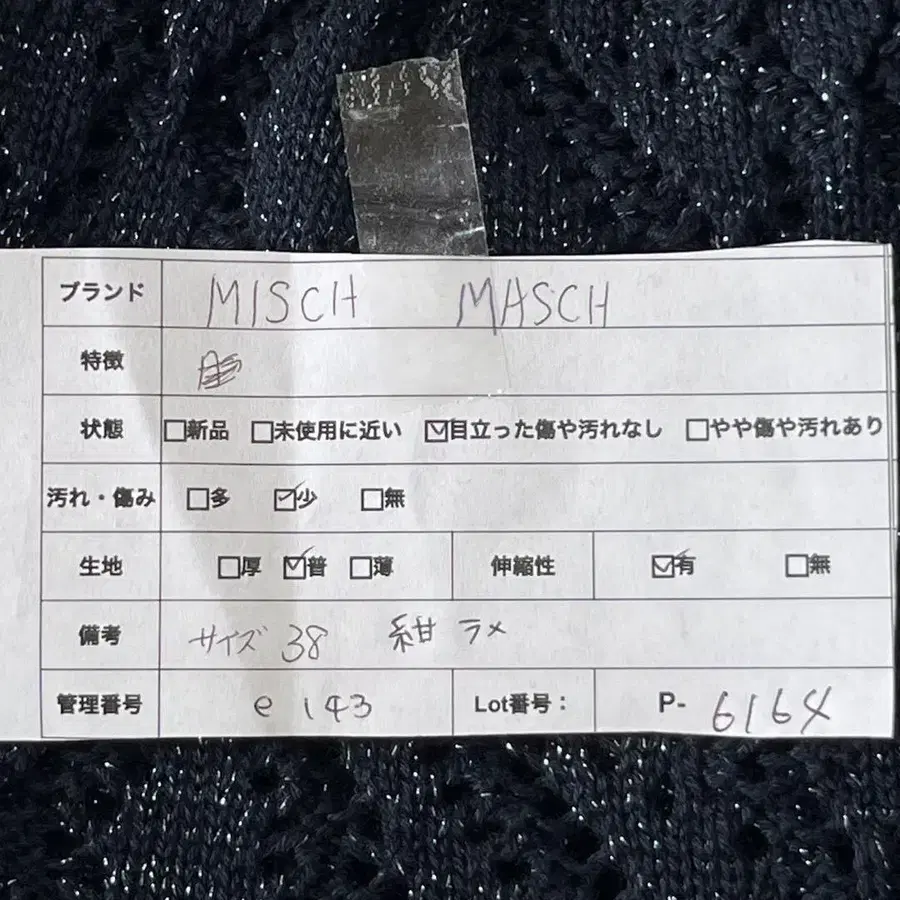 ブランド MISCH MASCH
特徴
状態 □新品 □未使用に近い ☑目立った傷や汚れなし □やや傷や汚れあり
汚れ・傷み □多 ☑少 □無
生地 □厚 ☑普 □薄 伸縮性 ☑有 □無
備考 サイズ 38 紺 ラメ
管理番号 e 143 Lot番号： P- 6164